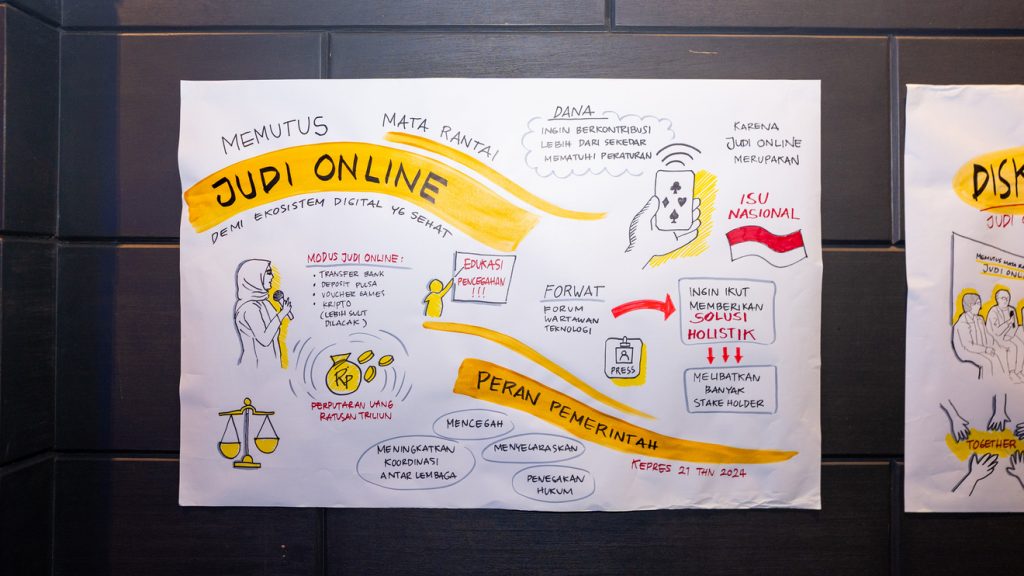 MEMUTUS
MATA RANTAI
JUDI ONLINE
DEMI EKOSISTEM DIGITAL YG SEHAT
DANA
INGIN BERKONTRIBUSI
LEBIH DARI SEKEDAR
MEMATUHI PERATURAN
KARENA
JUDI ONLINE
MERUPAKAN
ISU
NASIONAL
MODUS JUDI ONLINE:
• TRANSFER BANK
• DEPOSIT PULSA
• VOUCHER GAMES
• KRIPTO
(LEBIH SULIT
DILACAK)
EDUKASI
PENCEGAHAN
!!!
FORWAT
FORUM
WARTAWAN
TEKNOLOGI
PRESS
INGIN IKUT
MEMBERIKAN
SOLUSI
HOLISTIK
MELIBATKAN
BANYAK
STAKE HOLDER
Rp
PERPUTARAN UANG
RATUSAN TRILIUN
PERAN PEMERINTAH
KEPRES 21 THN 2024
MENCEGAH
MENINGKATKAN
KOORDINASI
ANTAR LEMBAGA
MENYELARASKAN
PENEGAKAN
HUKUM
DISK
JUDI
MEMUTUS MATA RA
JUDI ONL
TOGETHER